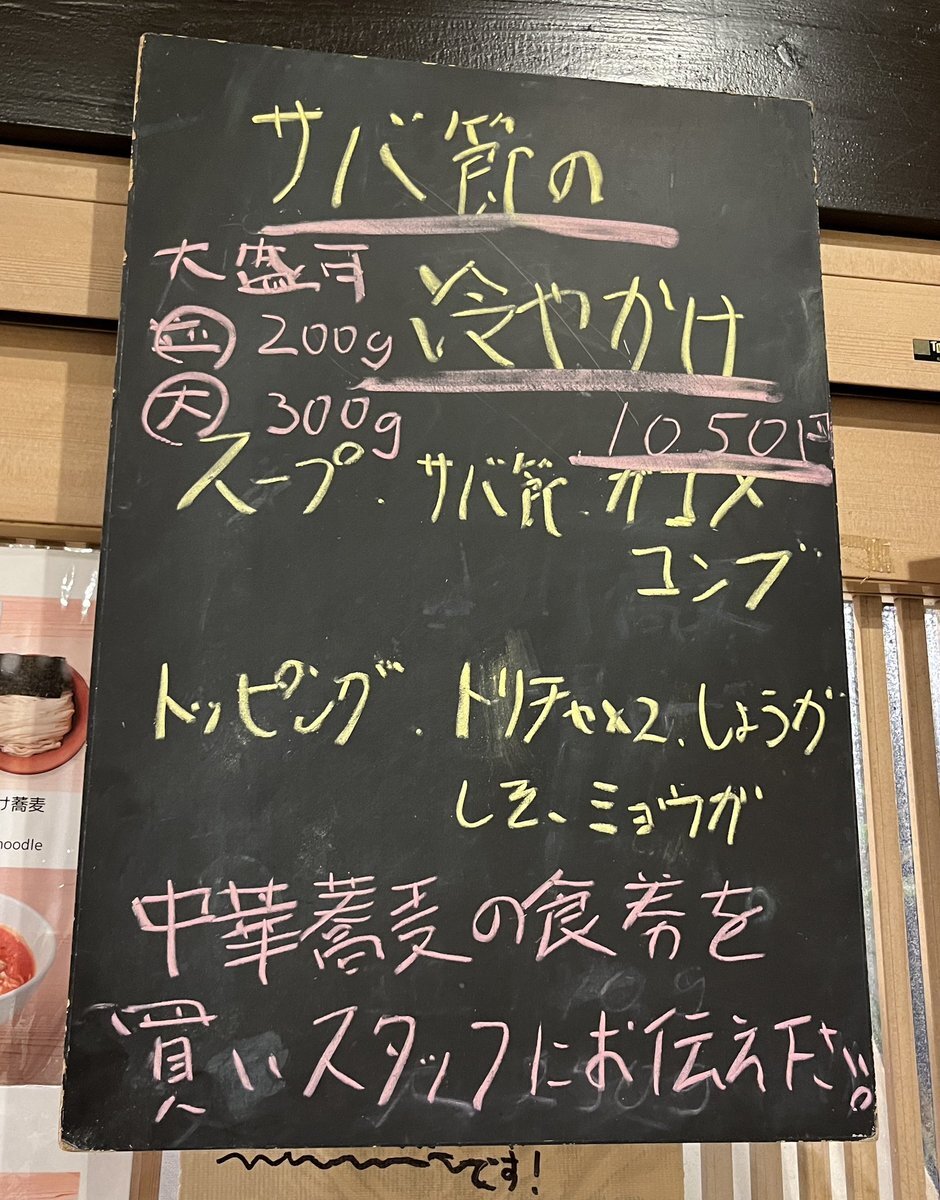 サバ節の
冷やかけ
大盛可
並 200g
大 300g
1050円
スープ.サバ節.ガゴメ
コンブ
トッピング.トリチャ×2、しょうが
しそ、ミョウガ
中華蕎麦の食券を
買いスタッフにお伝え下さい。
です!
け蕎麦
noodle